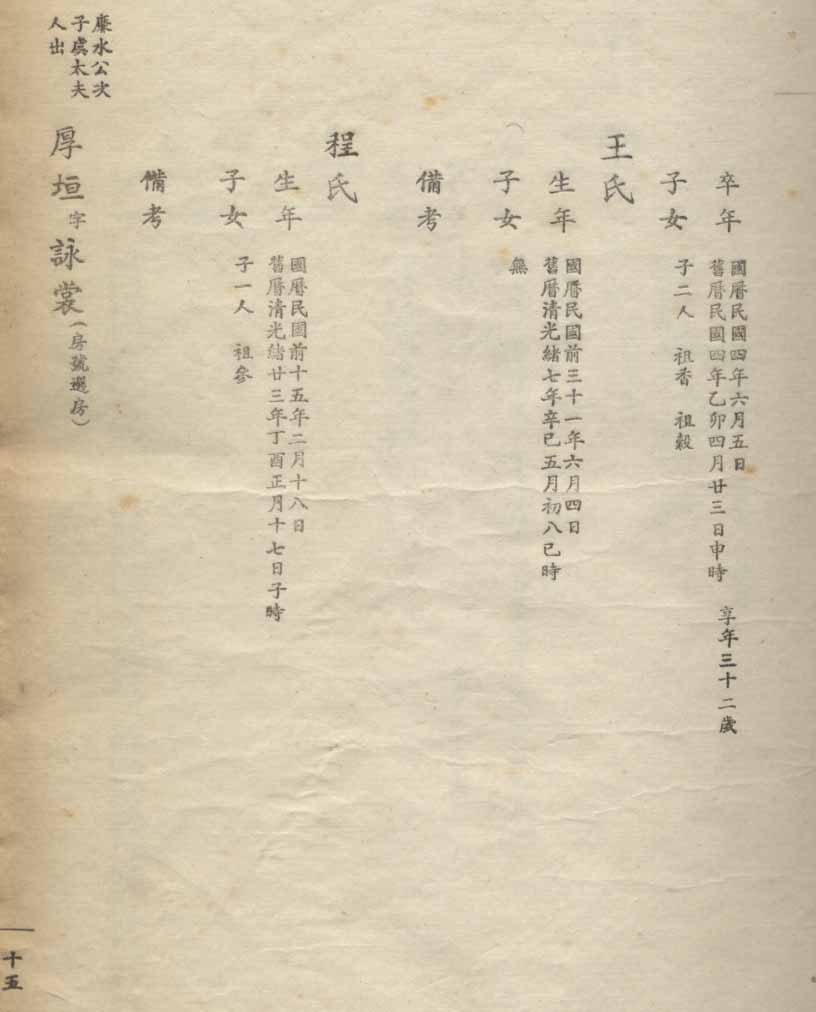 卒年
國曆民國四年六月五日
舊曆民國四年乙卯四月廿三日申時 享年三十二歲
子女
子二人 祖香 祖穀
王氏
生年
國曆民國前三十一年六月四日
舊曆清光緒七年辛巳五月初八巳時
子女
無
備考
程氏
生年
國曆民國前十五年二月十八日
舊曆清光緒廿三年丁酉正月十七日子時
子女
子一人 祖參
備考
廉水公次
子虞太夫
人出
厚垣字詠裳(房號選房)
十五